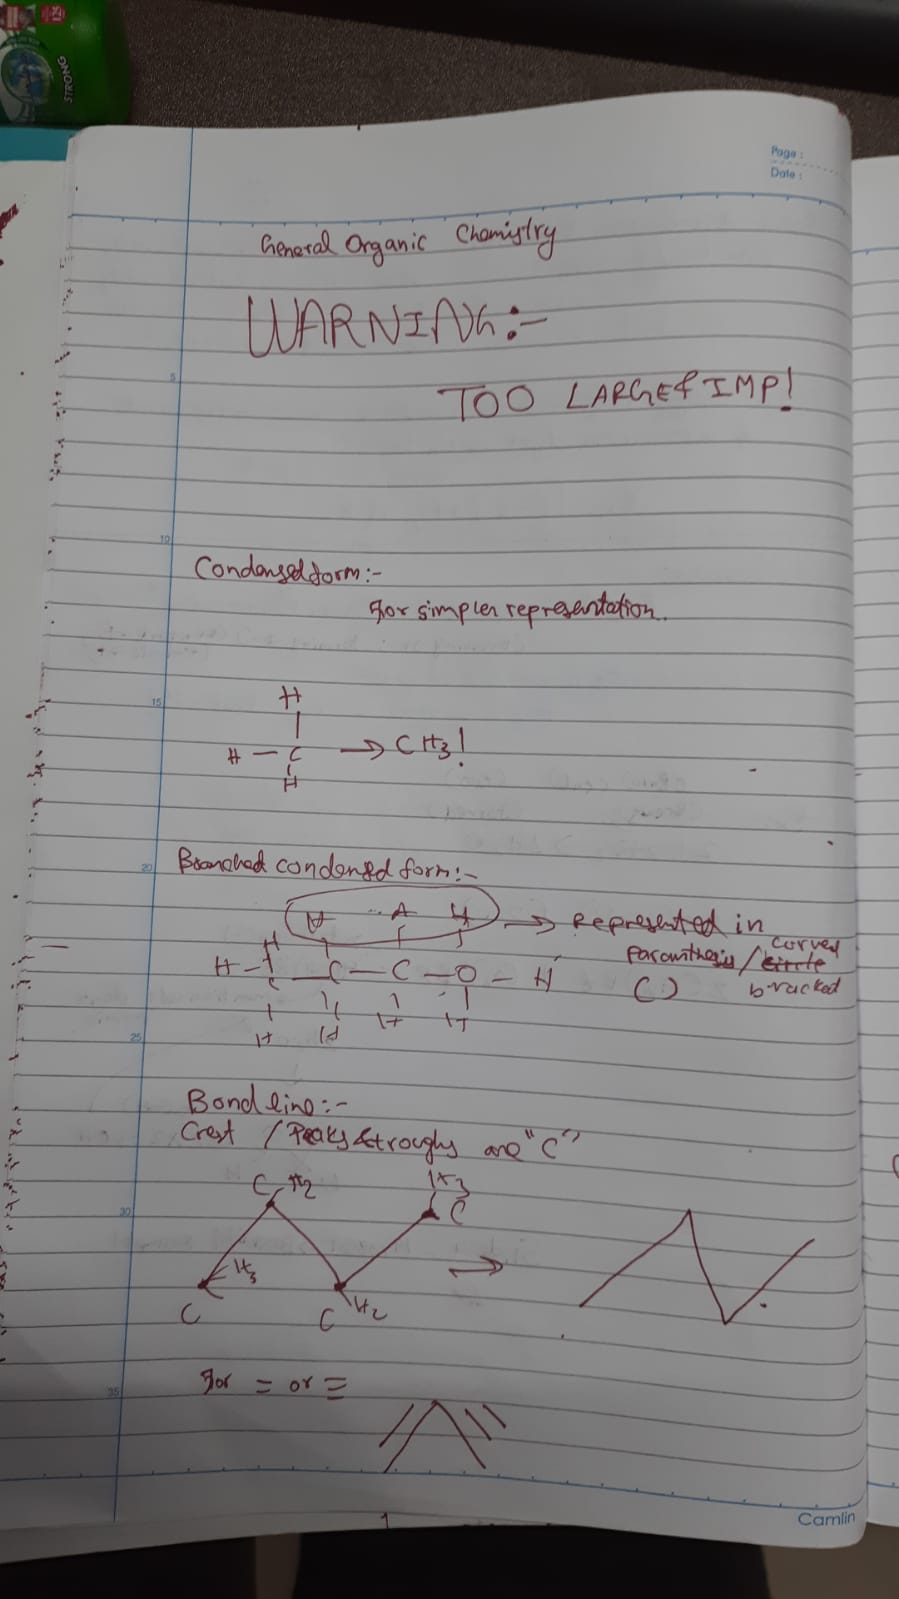 STRONG
Page :
Date :
General Organic Chemistry
WARNING:-
TOO LARGE & IMP!
5
10
Condensed form:-
For simpler representation.
15
H
H - C → CH3!
H
20
Branched condensed form:-
H H → Represented in
H Paranthesis / curved
H - C - C - O - H circle
C ( ) bracked
H H H H
25
Bond line:-
Crest / Peaks & troughs are "C"
C H2 H3
30
C
H3 →
C C H2
35
For = or ≡
1
Camlin